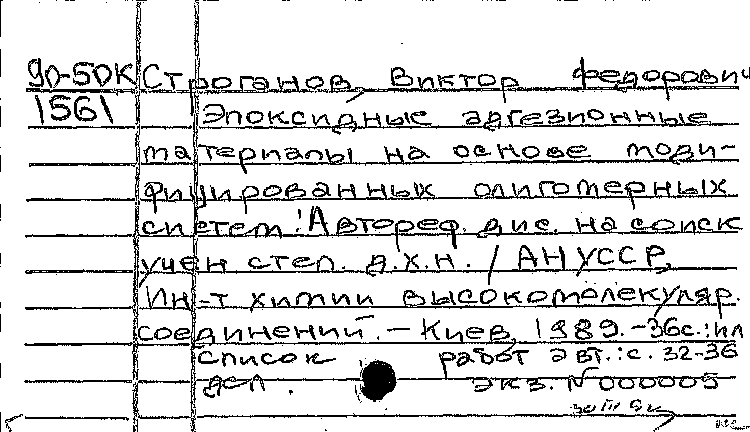 90-50К Строганов, Виктор Федорович
1561 Эпоксидные адгезионные
материалы на основе моди-
фицированных олигомерных
систем: Автореф. дис. на соиск
учен степ. д.х.н. / АН УССР,
Ин-т химии высокомолекуляр.
соединений. - Киев, 1989. - 36с.: ил
Список работ авт.: с. 32-36
дсп. экз. N 000005